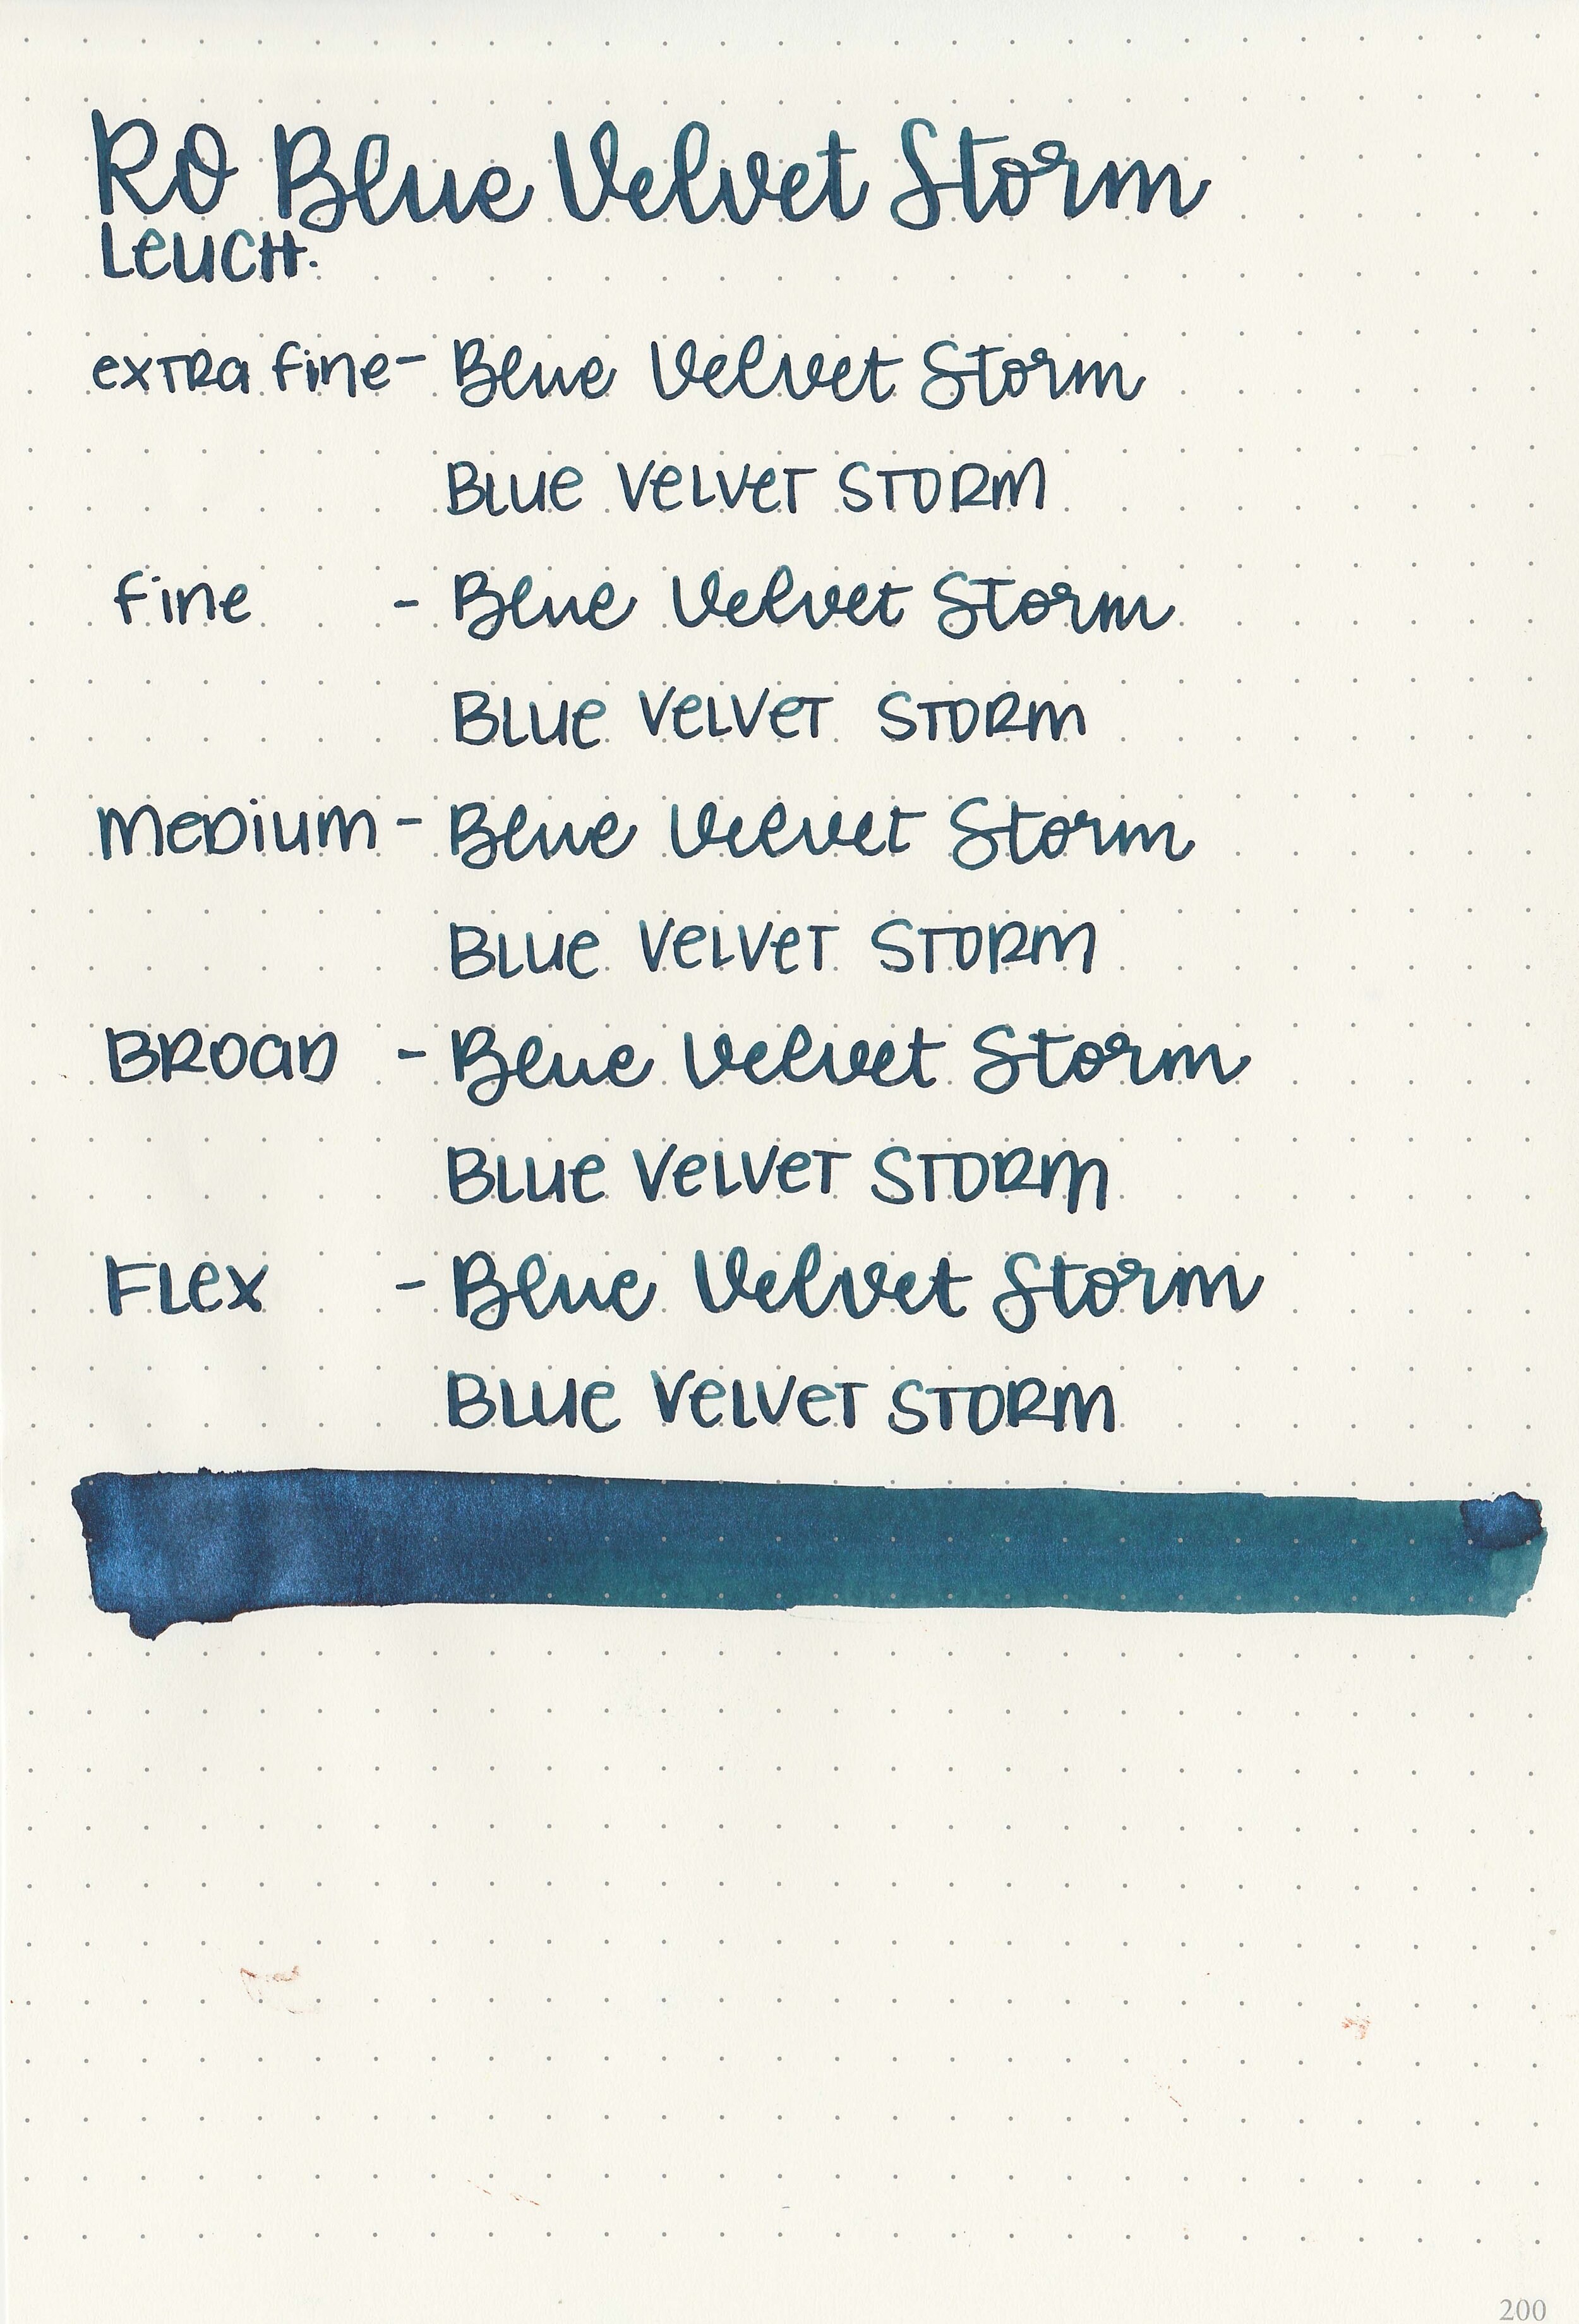 RO Blue Velvet Storm
LeUCHt.
exTRa fine - Blue Velvet Storm
BLUe VeLVeT STORM
fine - Blue Velvet Storm
BLUe VeLVeT STORM
MeDium - Blue Velvet Storm
BLUe VeLVeT STORM
BROaD - Blue Velvet Storm
BLUe VeLVeT STORM
FLex - Blue Velvet Storm
BLUe VeLVeT STORM
200